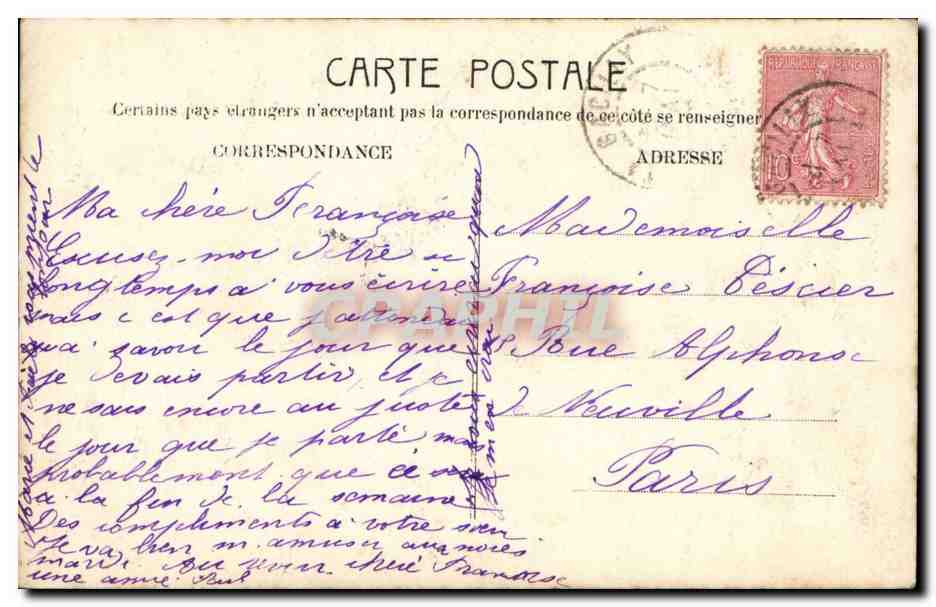 CARTE POSTALE
Certains pays étrangers n'acceptant pas la correspondance de ce côté se renseigner
CORRESPONDANCE
ADRESSE
RÉPUBLIQUE FRANÇAISE
10 c
Ma chère Françoise
Excusez-moi d'être si
longtemps a' vous écrire
mais c est que j'attendais
a' savoir le jour que
je devais partir, et je
ne sais encore au juste
le jour que je parte mais
probablement que ce
a la fin de la semaine
Des compliments a' votre
Je va bien m amuser aux noces
mardi. Au revoir chère Françoise
une amie
Mademoiselle
Françoise Tessier
Rue Alphonse
d Neuville
Paris
CPARHIL